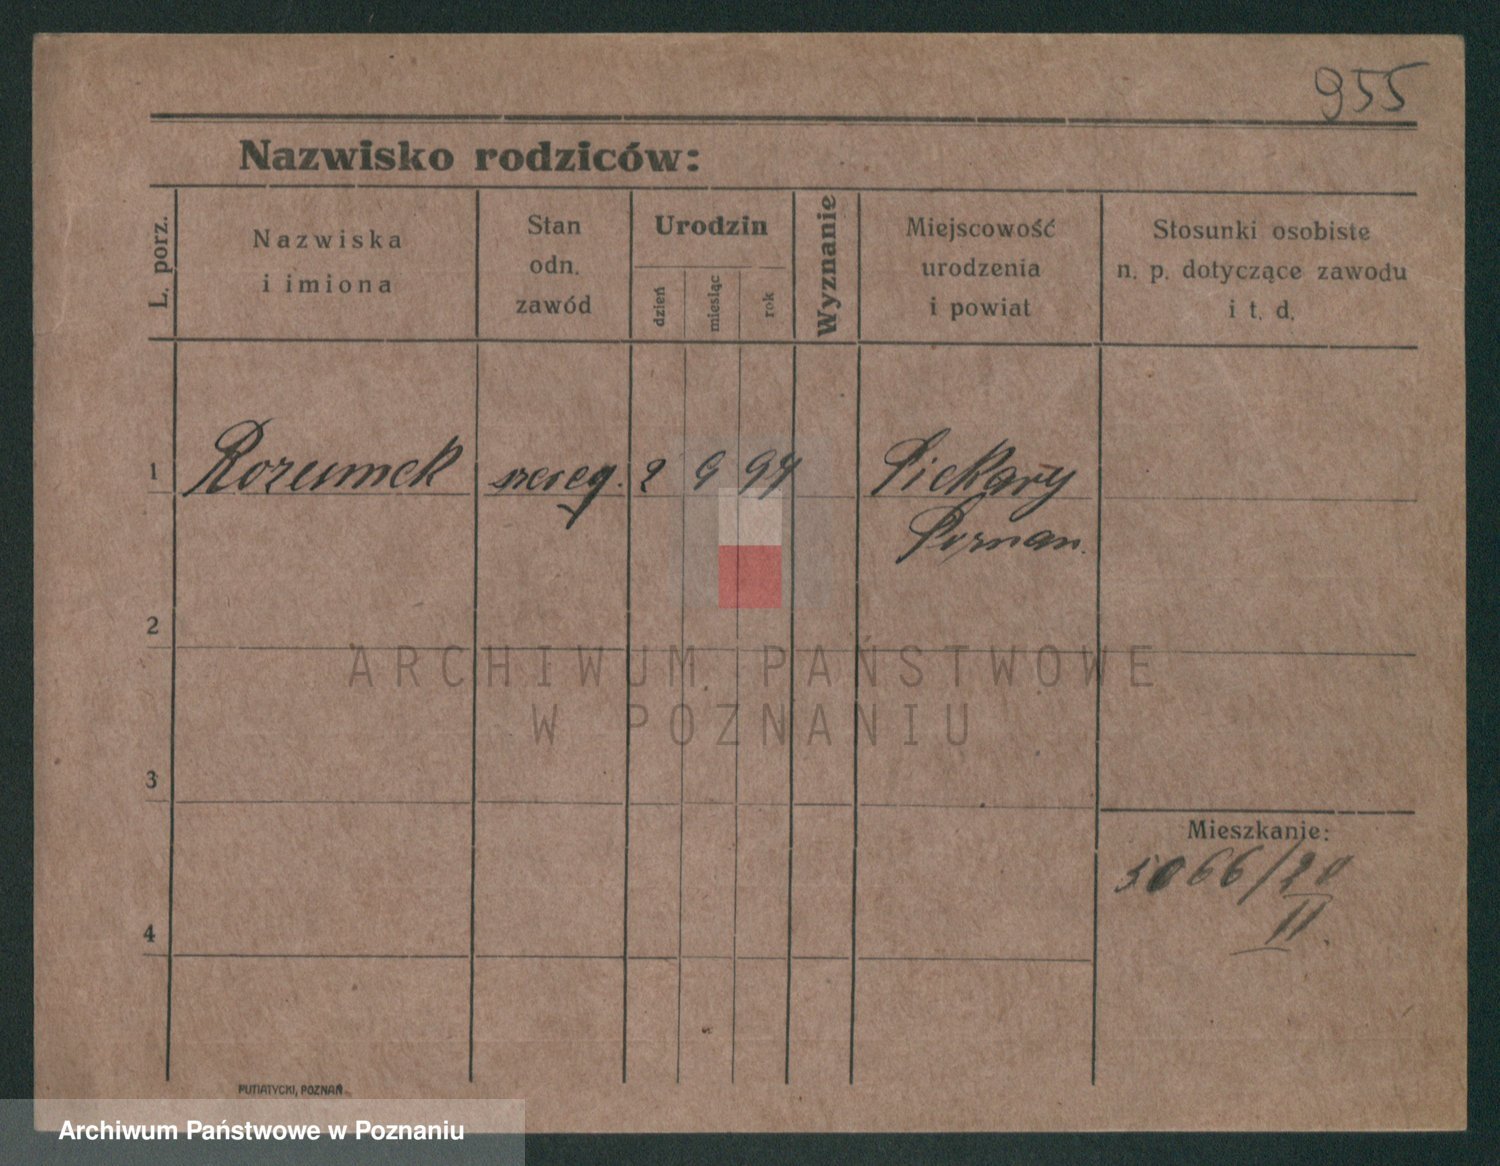 955
Nazwisko rodziców:
L. porz.
Nazwiska
i imiona
Stan
odn.
zawód
Urodzin
dzień
miesiąc
rok
Wyznanie
Miejscowość
urodzenia
i powiat
Stosunki osobiste
n. p. dotyczące zawodu
i t. d.
1
2 9 97
Piekary
Poznan.
2
ARCHIWUM PAŃSTWOWE
W POZNANIU
3
Mieszkanie:
5066/20
II.
4
PUTIATYCKI, POZNAŃ
Archiwum Państwowe w Poznaniu